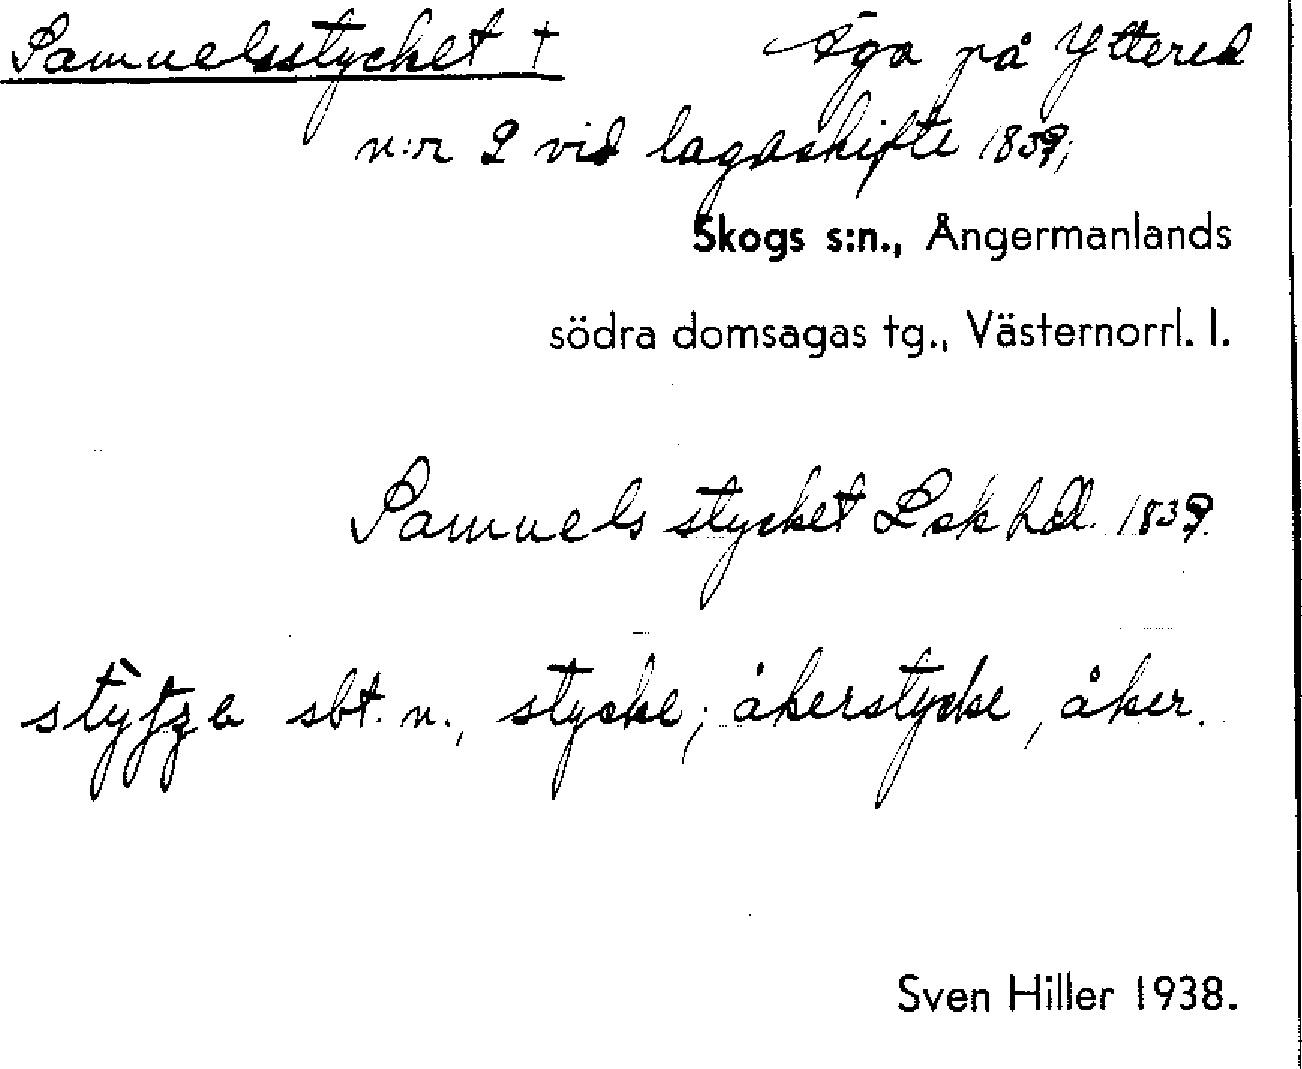 Samuelsstycket † Äga på Yttered
n:r 2 vid lagaskifte 1839;
Skogs s:n., Ångermanlands
södra domsagas tg., Västernorrl. l.
Samuels stycket Lskhdl. 1839.
sbt. n., stycke; åkerstycke, åker.
Sven Hiller 1938.